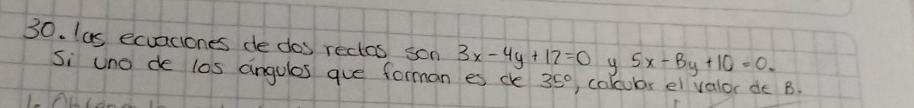 30. las ecuaciones de dos rectas son 3x-4y+12=0 y 5x-By+10=0.
Si uno de los ángulos que forman es de 35°, calcular el valor de B.